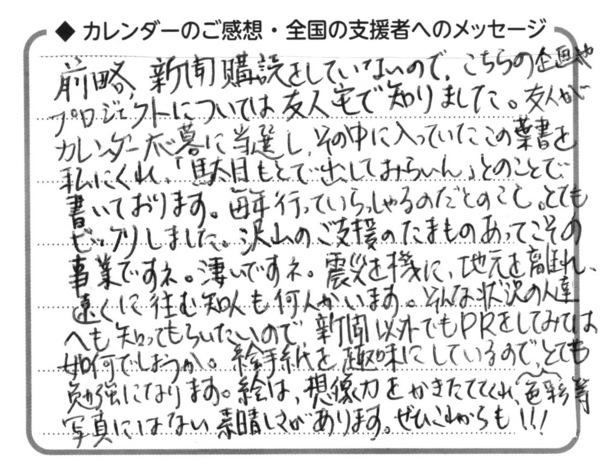 ◆ カレンダーのご感想・全国の支援者へのメッセージ
前略、新聞購読をしていないので、こちらの企画や
プロジェクトについては友人宅で知りました。友人が
カレンダー応募に当選し、その中に入っていたこの葉書を
私にくれ、「駄目もとで出してみらいん」とのことで
書いております。毎年行っていらっしゃるのだとのこと。とても
ビックリしました。沢山のご支援のたまものあってこその
事業ですネ。凄いですネ。震災を機に、地元を離れ、
遠くに住む知人も何人かいます。そんな状況の人達
へも知ってもらいたいので、新聞以外でもPRをしてみては
如何でしょうか。絵手紙を趣味にしているので、とても
勉強になります。絵は、想像力をかきたててくれ、色彩等
写真にはない素晴しさがあります。ぜひこれからも!!!